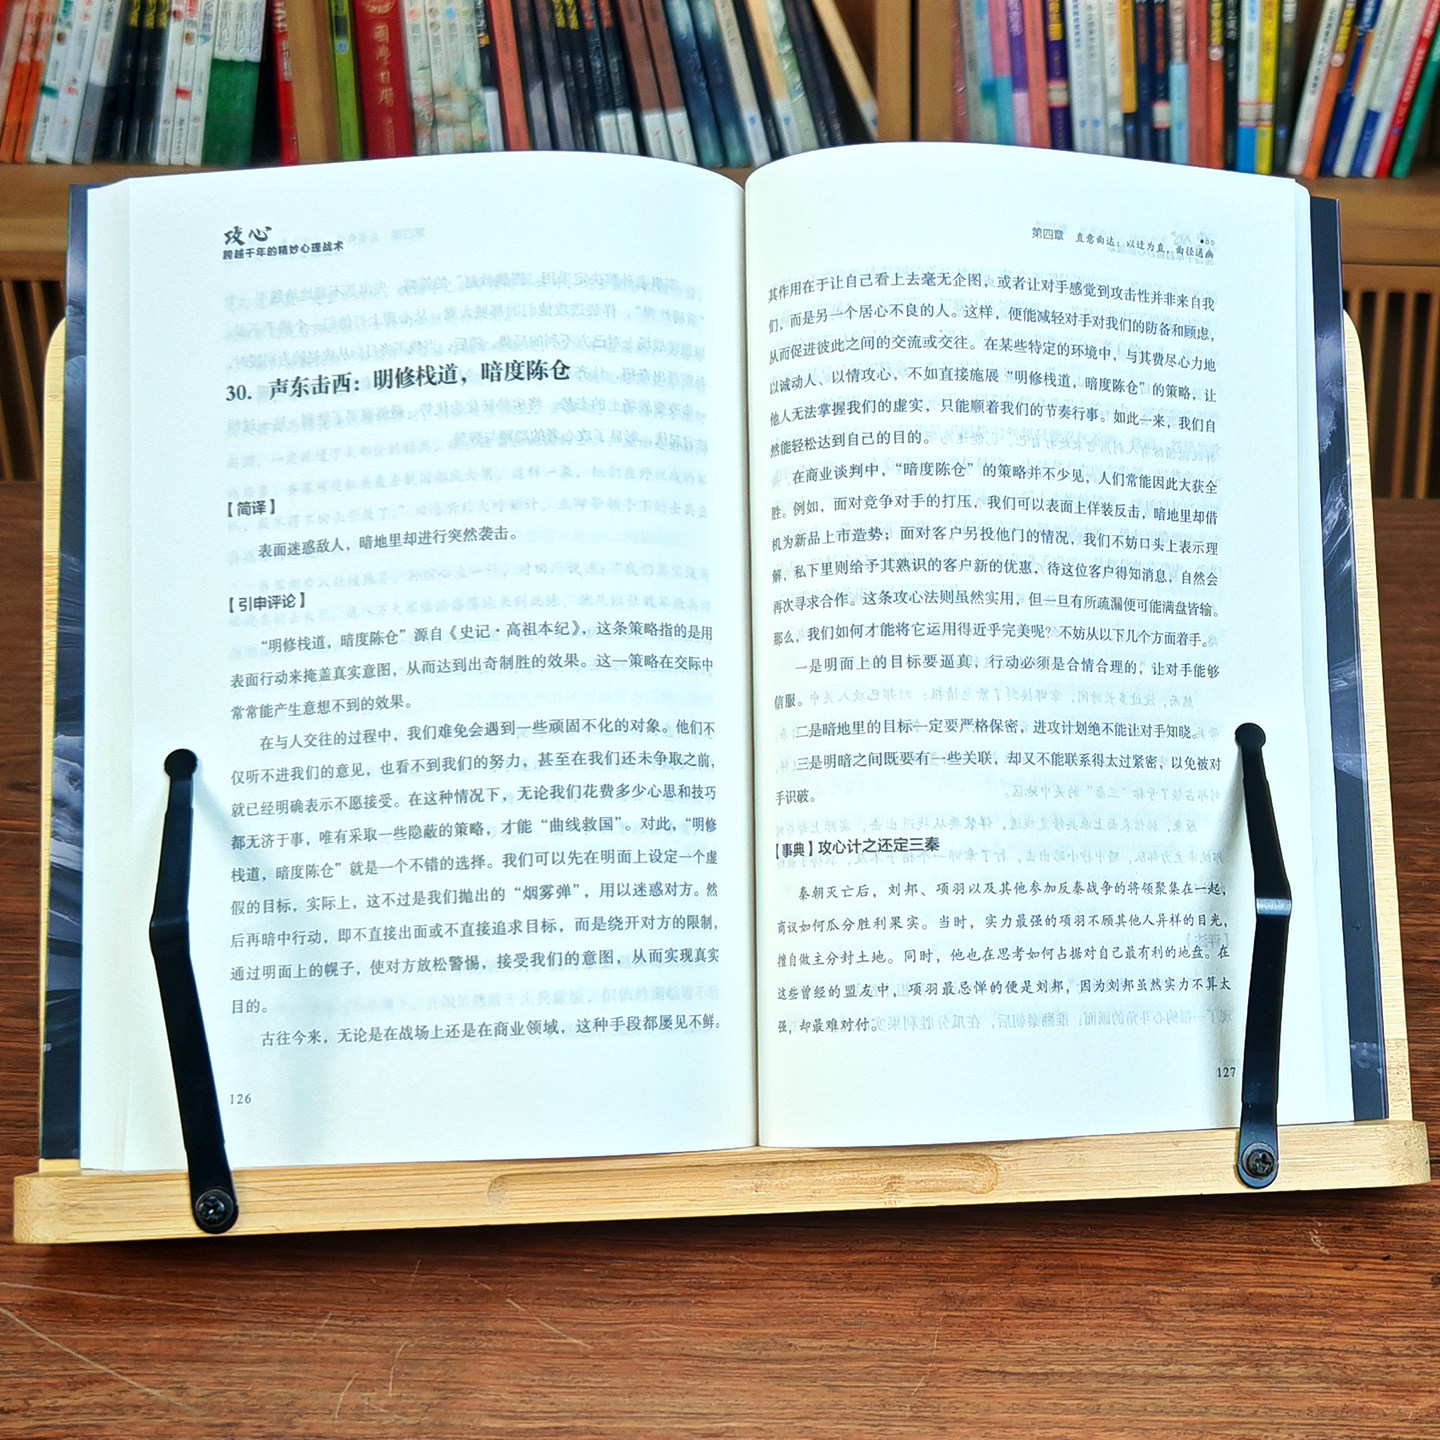 攻心
跨越千年的精妙心理战术
30. 声东击西：明修栈道，暗度陈仓
【简译】
表面迷惑敌人，暗地里却进行突然袭击。
【引申评论】
“明修栈道，暗度陈仓”源自《史记·高祖本纪》，这条策略指的是用
表面行动来掩盖真实意图，从而达到出奇制胜的效果。这一策略在交际中
常常能产生意想不到的效果。
在与人交往的过程中，我们难免会遇到一些顽固不化的对象。他们不
仅听不进我们的意见，也看不到我们的努力，甚至在我们还未争取之前，
就已经明确表示不愿接受。在这种情况下，无论我们花费多少心思和技巧
都无济于事，唯有采取一些隐蔽的策略，才能“曲线救国”。对此，“明修
栈道，暗度陈仓”就是一个不错的选择。我们可以先在明面上设定一个虚
假的目标，实际上，这不过是我们抛出的“烟雾弹”，用以迷惑对方。然
后再暗中行动，即不直接出面或不直接追求目标，而是绕开对方的限制，
通过明面上的幌子，使对方放松警惕，接受我们的意图，从而实现真实
目的。
古往今来，无论是在战场上还是在商业领域，这种手段都屡见不鲜。
126
第四章 直意曲达：以迂为直，曲径通幽
其作用在于让自己看上去毫无企图，或者让对手感觉到攻击性并非来自我
们，而是另一个居心不良的人。这样，便能减轻对手对我们的防备和顾虑，
从而促进彼此之间的交流或交往。在某些特定的环境中，与其费尽心力地
以诚动人、以情攻心，不如直接施展“明修栈道，暗度陈仓”的策略，让
他人无法掌握我们的虚实，只能顺着我们的节奏行事。如此一来，我们自
然能轻松达到自己的目的。
在商业谈判中，“暗度陈仓”的策略并不少见，人们常能因此大获全
胜。例如，面对竞争对手的打压，我们可以表面上佯装反击，暗地里却借
机为新品上市造势；面对客户另投他门的情况，我们不妨口头上表示理
解，私下里则给予其熟识的客户新的优惠，待这位客户得知消息，自然会
再次寻求合作。这条攻心法则虽然实用，但一旦有所疏漏便可能满盘皆输。
那么，我们如何才能将它运用得近乎完美呢？不妨从以下几个方面着手。
一是明面上的目标要逼真，行动必须是合情合理的，让对手能够
信服。
二是暗地里的目标一定要严格保密，进攻计划绝不能让对手知晓。
三是明暗之间既要有一些关联，却又不能联系得太过紧密，以免被对
手识破。
【事典】攻心计之还定三秦
秦朝灭亡后，刘邦、项羽以及其他参加反秦战争的将领聚集在一起，
商议如何瓜分胜利果实。当时，实力最强的项羽不顾其他人异样的目光，
擅自做主分封土地。同时，他也在思考如何占据对自己最有利的地盘。在
这些曾经的盟友中，项羽最忌惮的便是刘邦，因为刘邦虽然实力不算太
强，却最难对付。
127